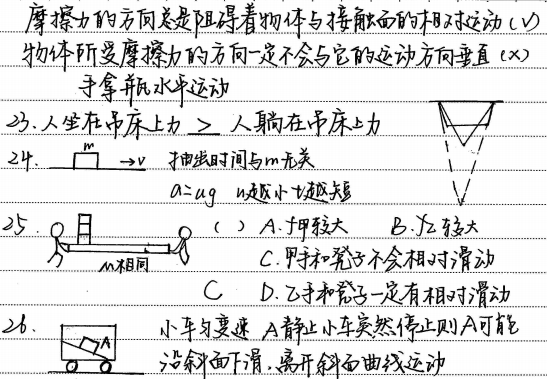 摩擦力的方向总是阻碍着物体与接触面的相对运动(√)
物体所受摩擦力的方向一定不会与它的运动方向垂直(×)
手拿瓶水平运动
23.人坐在吊床上力 > 人躺在吊床上力
24. m →v 抽出时间与m无关
a=ug u越小t越短
25. m相同 ( ) A.f甲较大 B.f乙较大
C.甲手和凳子不会相对滑动
C D.乙手和凳子一定有相对滑动
26. A 小车匀变速 A静止小车突然停止则A可能
沿斜面下滑,离开斜面曲线运动